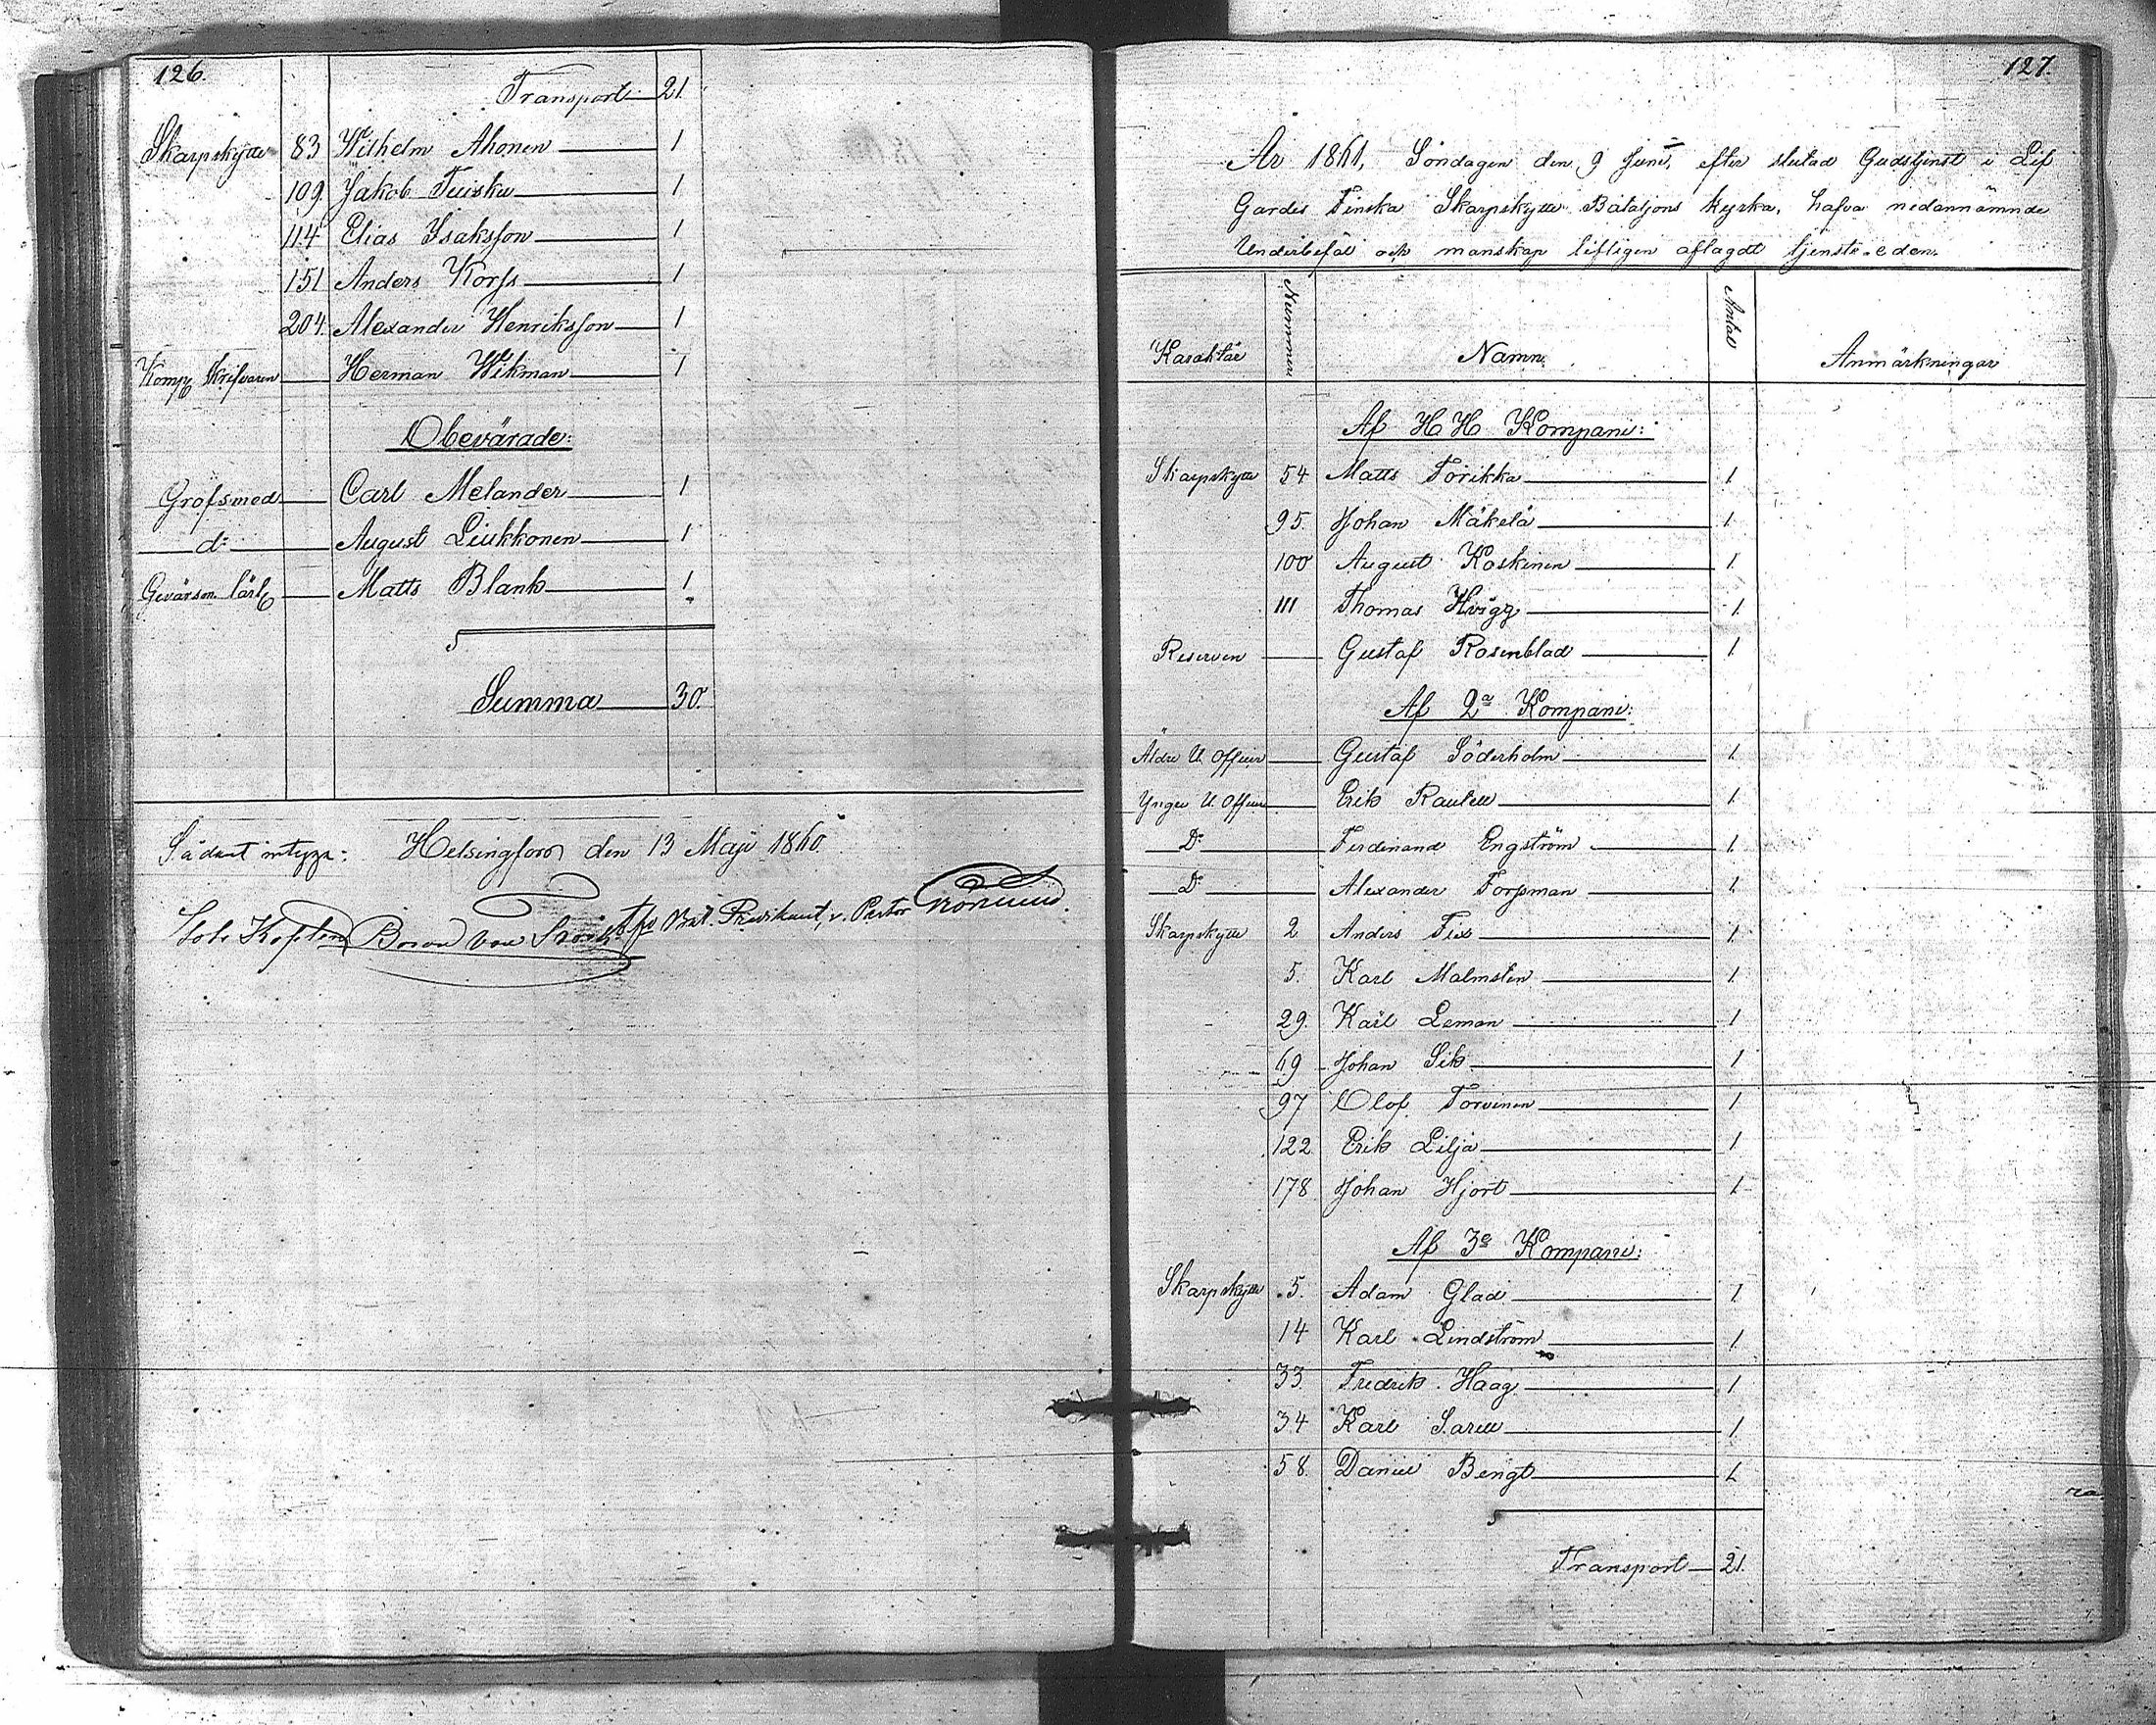 126.
Transport 21.
Skarpskytte 83 Wilhelm Ahonen 1
109. Jakob Tuisku 1
114 Elias Isaksson 1
151 Anders Korss 1
204. Alexander Henriksson 1
Komp. Skrifvaren Herman Wikman 1
Obevärade:
Grofsmed Carl Melander 1
d:o August Liukkonen 1
Gevärsm. lärl. Matts Blank 1
Summa 30.
Sådant intyga: Helsingfors den 13 Maji 1860.
Kapten Baron von Bat. Predikant, v. Pastor
127.
År 1861, Söndagen den 9 Juni, efter slutad Gudstjenst i Lif
Gardes Finska Skarpskytte Bataljons kyrka, hafva nedannämnde
Underbefäl och manskap lifligen aflagdt tjenste-eden.
Karaktär Nummer Namn. Antal Anmärkningar
Af H. H. Kompani:
Skarpskytte 54 Matts Torikka 1.
95. Johan Mäkelä 1.
100 August Koskinen 1.
111 Thomas Hvigg 1.
Reserven Gustaf Rosenblad 1.
Af 2a Kompani:
Äldre U. Officer Gustaf Söderholm 1.
Yngre U. Officer Erik Rautell 1.
D:o Ferdinand Engström 1.
D:o Alexander Forssman 1.
Skarpskytte 2. Anders Fex 1.
5. Karl Malmsten 1.
29. Karl Leman 1
69 Johan Sik 1
97 Olof Torvinen 1
122 Erik Lilja 1
178 Johan Hjort 1.
Af 3e Kompani:
Skarpskytte 5. Adam Glad 1.
14 Karl Lindström 1.
33. Fredrik Haag 1.
34 Karl Sarell 1.
58. Daniel Bengt 1.
Transport 21.